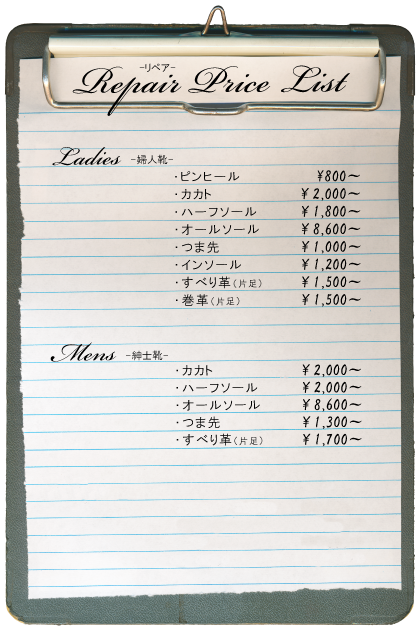 -リペア-
Repair Price List
Ladies -婦人靴-
・ピンヒール ¥800〜
・カカト ¥2,000〜
・ハーフソール ¥1,800〜
・オールソール ¥8,600〜
・つま先 ¥1,000〜
・インソール ¥1,200〜
・すべり革(片足) ¥1,500〜
・巻革(片足) ¥1,500〜
Mens -紳士靴-
・カカト ¥2,000〜
・ハーフソール ¥2,000〜
・オールソール ¥8,600〜
・つま先 ¥1,300〜
・すべり革(片足) ¥1,700〜